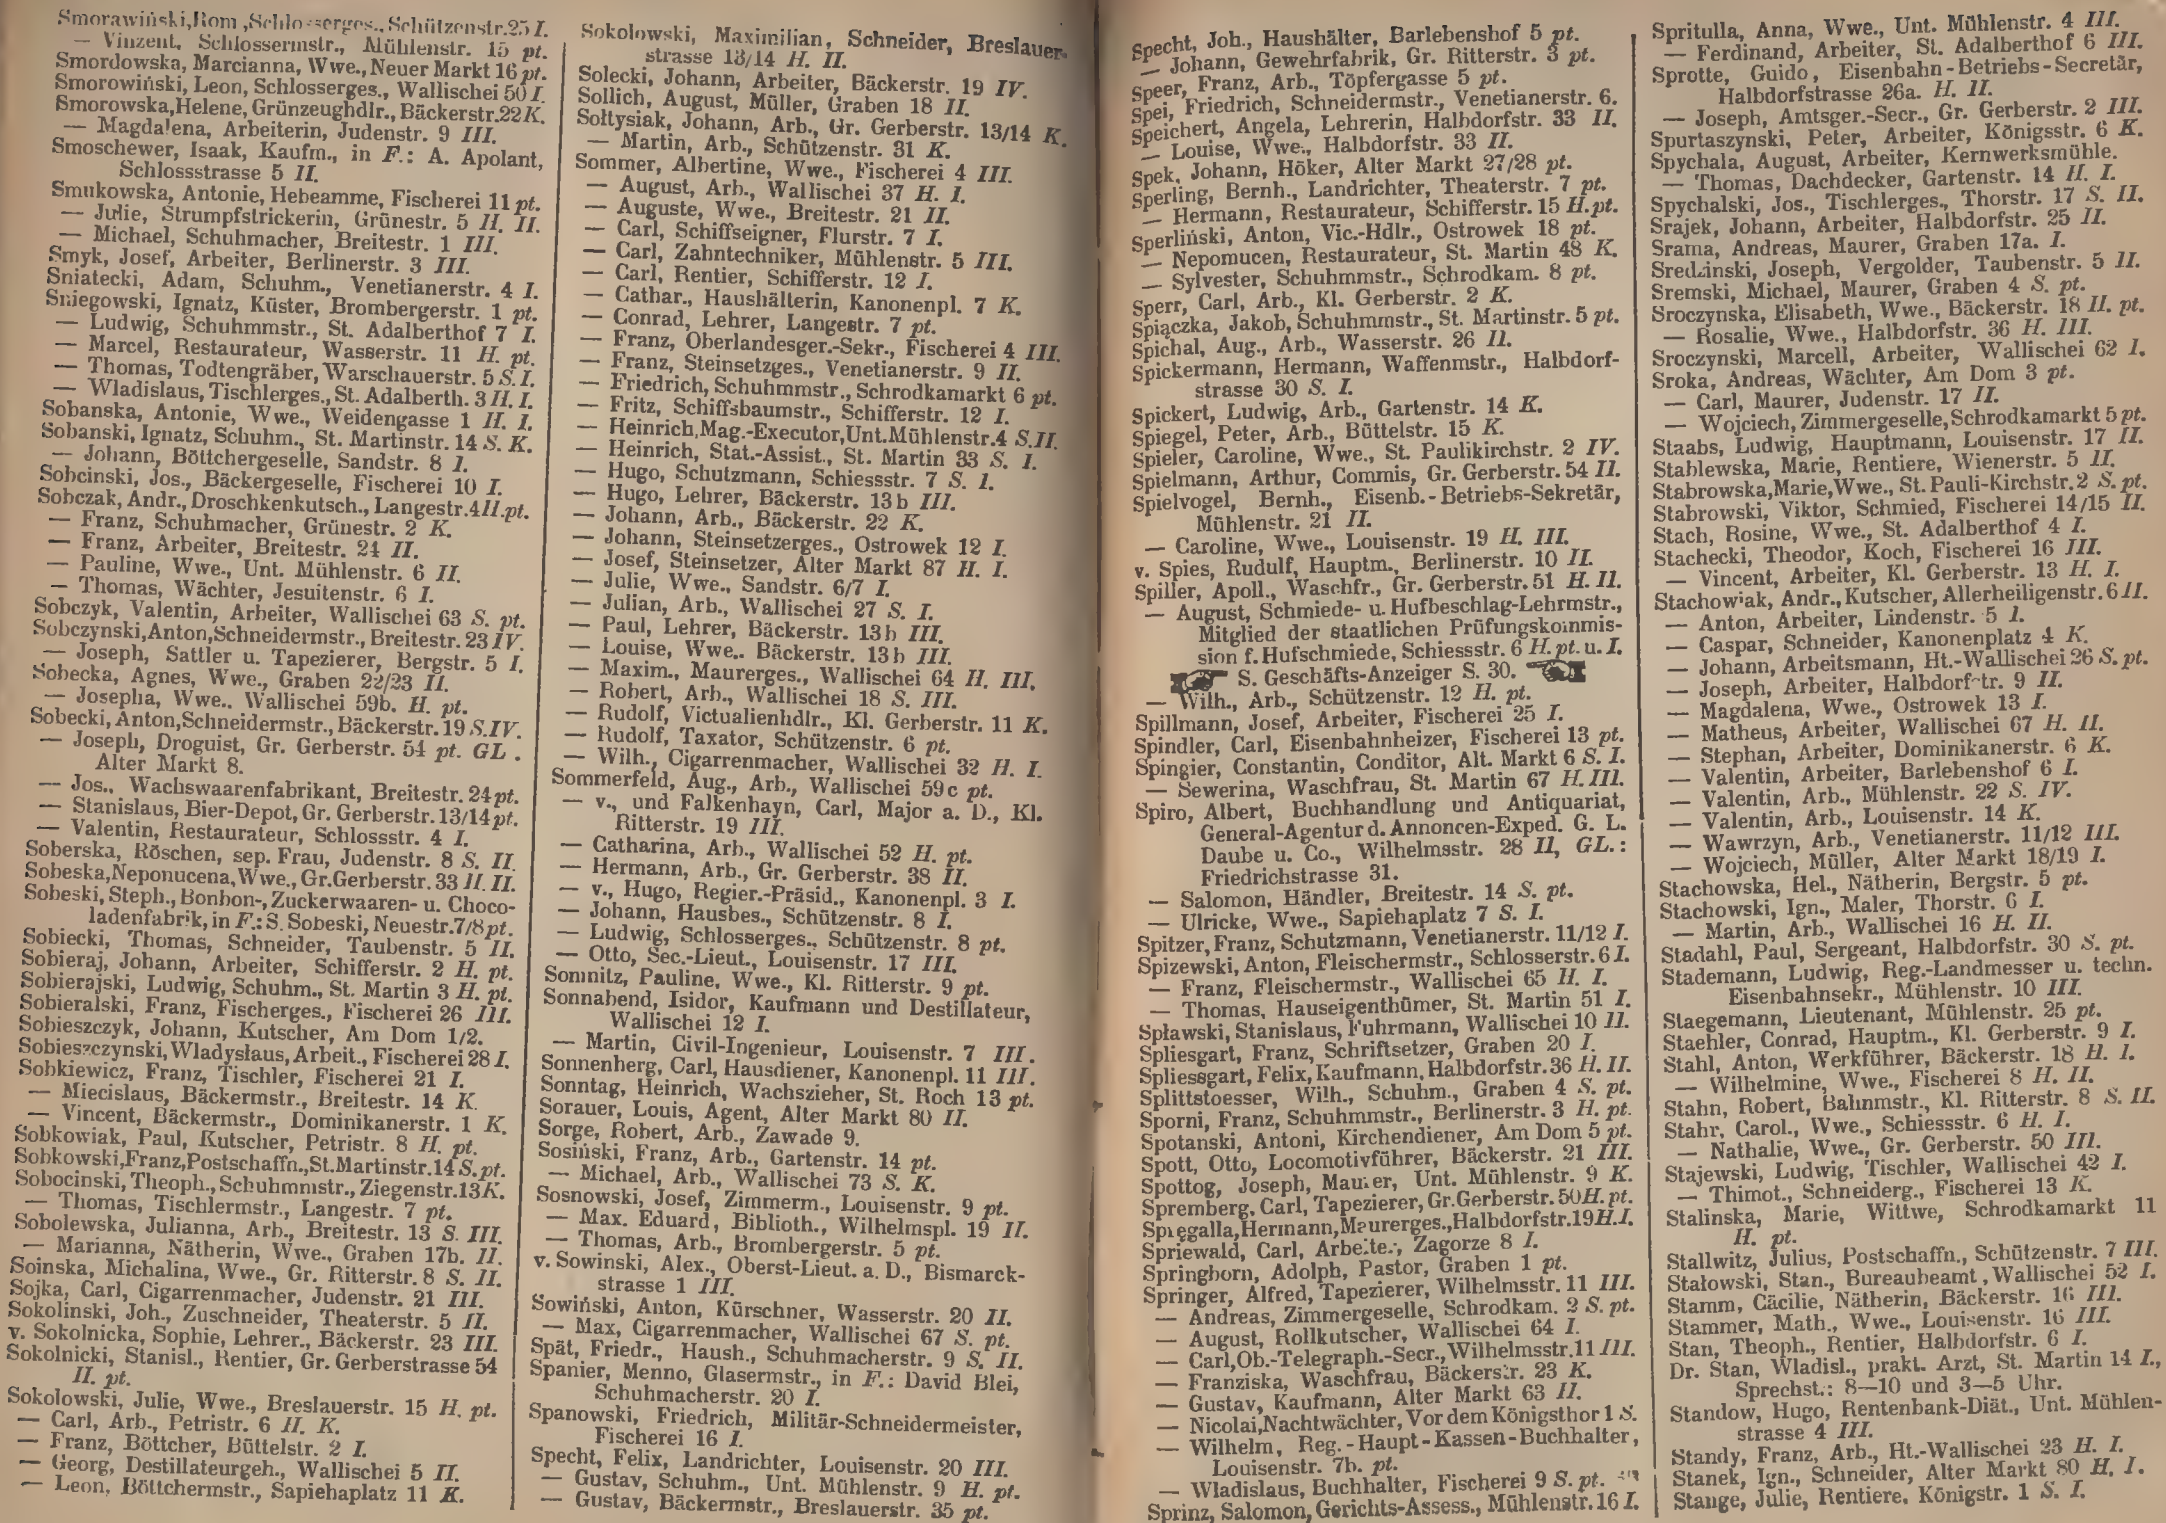 Smorawiński, Rom., Schlosserges., Schützenstr. 25 I.
— Vinzent, Schlossermstr., Mühlenstr. 15 pt.
Smordowska, Marcianna, Wwe., Neuer Markt 16 pt.
Smorowiński, Leon, Schlosserges., Wallischei 50 I.
Smorowska, Helene, Grünzeughdlr., Bäckerstr. 22 K.
— Magdalena, Arbeiterin, Judenstr. 9 III.
Smoschewer, Isaak, Kaufm., in F.: A. Apolant,
Schlossstrasse 5 II.
Smukowska, Antonie, Hebeamme, Fischerei 11 pt.
— Julie, Strumpfstrickerin, Grünestr. 5 H. II.
— Michael, Schuhmacher, Breitestr. 1 III.
Smyk, Josef, Arbeiter, Berlinerstr. 3 III.
Sniatecki, Adam, Schuhm., Venetianerstr. 4 I.
Sniegowski, Ignatz, Küster, Brombergerstr. 1 pt.
— Ludwig, Schuhmmstr., St. Adalberthof 7 I.
— Marcel, Restaurateur, Wasserstr. 11 H. pt.
— Thomas, Todtengräber, Warschauerstr. 5 S. I.
— Wladislaus, Tischlerges., St. Adalberth. 3 H. I.
Sobanska, Antonie, Wwe., Weidengasse 1 H. I.
Sobanski, Ignatz, Schuhm., St. Martinstr. 14 S. K.
— Johann, Böttchergeselle, Sandstr. 8 I.
Sobcinski, Jos., Bäckergeselle, Fischerei 10 I.
Sobczak, Andr., Droschkenkutsch., Langestr. 4 II. pt.
— Franz, Schuhmacher, Grünestr. 2 K.
— Franz, Arbeiter, Breitestr. 24 II.
— Pauline, Wwe., Unt. Mühlenstr. 6 II.
— Thomas, Wächter, Jesuitenstr. 6 I.
Sobczyk, Valentin, Arbeiter, Wallischei 63 S. pt.
Sobczynski, Anton, Schneidermstr., Breitestr. 23 IV.
— Joseph, Sattler u. Tapezierer, Bergstr. 5 I.
Sobecka, Agnes, Wwe., Graben 22/23 II.
— Josepha, Wwe.. Wallischei 59b. H. pt.
Sobecki, Anton, Schneidermstr., Bäckerstr. 19 S. IV.
— Joseph, Droguist, Gr. Gerberstr. 54 pt. GL.
Alter Markt 8.
— Jos., Wachswaarenfabrikant, Breitestr. 24 pt.
— Stanislaus, Bier-Depot, Gr. Gerberstr. 13/14 pt.
— Valentin, Restaurateur, Schlossstr. 4 I.
Soberska, Röschen, sep. Frau, Judenstr. 8 S. II.
Sobeska, Neponucena, Wwe., Gr. Gerberstr. 33 II. II.
Sobeski, Steph., Bonbon-, Zuckerwaaren- u. Choco-
ladenfabrik, in F.: S. Sobeski, Neuestr. 7/8 pt.
Sobiecki, Thomas, Schneider, Taubenstr. 5 II.
Sobieraj, Johann, Arbeiter, Schifferstr. 2 H. pt.
Sobierajski, Ludwig, Schuhm., St. Martin 3 H. pt.
Sobieralski, Franz, Fischerges., Fischerei 26 III.
Sobieszczyk, Johann, Kutscher, Am Dom 1/2.
Sobieszczynski, Wladyslaus, Arbeit., Fischerei 28 I.
Sobkiewicz, Franz, Tischler, Fischerei 21 I.
— Miecislaus, Bäckermstr., Breitestr. 14 K.
— Vincent, Bäckermstr., Dominikanerstr. 1 K.
Sobkowiak, Paul, Kutscher, Petristr. 8 H. pt.
Sobkowski, Franz, Postschaffn., St. Martinstr. 14 S. pt.
Sobocinski, Theoph., Schuhmmstr., Ziegenstr. 13 K.
— Thomas, Tischlermstr., Langestr. 7 pt.
Sobolewska, Julianna, Arb., Breitestr. 13 S. III.
— Marianna, Nätherin, Wwe., Graben 17b. II.
Soinska, Michalina, Wwe., Gr. Ritterstr. 8 S. II.
Sojka, Carl, Cigarrenmacher, Judenstr. 21 III.
Sokolinski, Joh., Zuschneider, Theaterstr. 5 II.
v. Sokolnicka, Sophie, Lehrer., Bäckerstr. 23 III.
Sokolnicki, Stanisl., Rentier, Gr. Gerberstrasse 54
II. pt.
Sokolowski, Julie, Wwe., Breslauerstr. 15 H. pt.
— Carl, Arb., Petristr. 6 H. K.
— Franz, Böttcher, Büttelstr. 2 I.
— Georg, Destillateurgeh., Wallischei 5 II.
— Leon, Böttchermstr., Sapiehaplatz 11 K.
Sokolowski, Maximilian, Schneider, Breslauer-
strasse 13/14 H. II.
Solecki, Johann, Arbeiter, Bäckerstr. 19 IV.
Sollich, August, Müller, Graben 18 II.
Sołtysiak, Johann, Arb., Gr. Gerberstr. 13/14 K.
— Martin, Arb., Schützenstr. 31 K.
Sommer, Albertine, Wwe., Fischerei 4 III.
— August, Arb., Wallischei 37 H. I.
— Auguste, Wwe., Breitestr. 21 II.
— Carl, Schiffseigner, Flurstr. 7 I.
— Carl, Zahntechniker, Mühlenstr. 5 III.
— Carl, Rentier, Schifferstr. 12 I.
— Cathar., Haushälterin, Kanonenpl. 7 K.
— Conrad, Lehrer, Langestr. 7 pt.
— Franz, Oberlandesger.-Sekr., Fischerei 4 III.
— Franz, Steinsetzges., Venetianerstr. 9 II.
— Friedrich, Schuhmmstr., Schrodkamarkt 6 pt.
— Fritz, Schiffsbaumstr., Schifferstr. 12 I.
— Heinrich, Mag.-Executor, Unt. Mühlenstr. 4 S. II.
— Heinrich, Stat.-Assist., St. Martin 33 S. I.
— Hugo, Schutzmann, Schiessstr. 7 S. I.
— Hugo, Lehrer, Bäckerstr. 13b III.
— Johann, Arb., Bäckerstr. 22 K.
— Johann, Steinsetzerges., Ostrowek 12 I.
— Josef, Steinsetzer, Alter Markt 87 H. I.
— Julie, Wwe., Sandstr. 6/7 I.
— Julian, Arb., Wallischei 27 S. I.
— Paul, Lehrer, Bäckerstr. 13b III.
— Louise, Wwe.. Bäckerstr. 13b III.
— Maxim., Maurerges., Wallischei 64 H. III.
— Robert, Arb., Wallischei 18 S. III.
— Rudolf, Victualienhdlr., Kl. Gerberstr. 11 K.
— Rudolf, Taxator, Schützenstr. 6 pt.
— Wilh., Cigarrenmacher, Wallischei 32 H. I.
Sommerfeld, Aug., Arb., Wallischei 59c pt.
— v., und Falkenhayn, Carl, Major a. D., Kl.
Ritterstr. 19 III.
— Catharina, Arb., Wallischei 52 H. pt.
— Hermann, Arb., Gr. Gerberstr. 38 II.
— v., Hugo, Regier.-Präsid., Kanonenpl. 3 I.
— Johann, Hausbes., Schützenstr. 8 I.
— Ludwig, Schlosserges., Schützenstr. 8 pt.
— Otto, Sec.-Lieut., Louisenstr. 17 III.
Somnitz, Pauline, Wwe., Kl. Ritterstr. 9 pt.
Sonnabend, Isidor, Kaufmann und Destillateur,
Wallischei 12 I.
— Martin, Civil-Ingenieur, Louisenstr. 7 III.
Sonnenberg, Carl, Hausdiener, Kanonenpl. 11 III.
Sonntag, Heinrich, Wachszieher, St. Roch 13 pt.
Sorauer, Louis, Agent, Alter Markt 80 II.
Sorge, Robert, Arb., Zawade 9.
Sosiński, Franz, Arb., Gartenstr. 14 pt.
— Michael, Arb., Wallischei 73 S. K.
Sosnowski, Josef, Zimmerm., Louisenstr. 9 pt.
— Max. Eduard, Biblioth., Wilhelmspl. 19 II.
— Thomas, Arb., Brombergerstr. 5 pt.
v. Sowinski, Alex., Oberst-Lieut. a. D., Bismarck-
strasse 1 III.
Sowiński, Anton, Kürschner, Wasserstr. 20 II.
— Max, Cigarrenmacher, Wallischei 67 S. pt.
Spät, Friedr., Haush., Schuhmacherstr. 9 S. II.
Spanier, Menno, Glasermstr., in F.: David Blei,
Schuhmacherstr. 20 I.
Spanowski, Friedrich, Militär-Schneidermeister,
Fischerei 16 I.
Specht, Felix, Landrichter, Louisenstr. 20 III.
— Gustav, Schuhm., Unt. Mühlenstr. 9 H. pt.
— Gustav, Bäckermstr., Breslauerstr. 35 pt.
Specht, Joh., Haushälter, Barlebenshof 5 pt.
— Johann, Gewehrfabrik, Gr. Ritterstr. 3 pt.
Speer, Franz, Arb., Töpfergasse 5 pt.
Spei, Friedrich, Schneidermstr., Venetianerstr. 6.
Speichert, Angela, Lehrerin, Halbdorfstr. 33 II.
— Louise, Wwe., Halbdorfstr. 33 II.
Spek, Johann, Höker, Alter Markt 27/28 pt.
Sperling, Bernh., Landrichter, Theaterstr. 7 pt.
— Hermann, Restaurateur, Schifferstr. 15 H. pt.
Sperliński, Anton, Vic.-Hdlr., Ostrowek 18 pt.
— Nepomucen, Restaurateur, St. Martin 48 K.
— Sylvester, Schuhmmstr., Schrodkam. 8 pt.
Sperr, Carl, Arb., Kl. Gerberstr. 2 K.
Spiączka, Jakob, Schuhmmstr., St. Martinstr. 5 pt.
Spichal, Aug., Arb., Wasserstr. 26 II.
Spickermann, Hermann, Waffenmstr., Halbdorf-
strasse 30 S. I.
Spickert, Ludwig, Arb., Gartenstr. 14 K.
Spiegel, Peter, Arb., Büttelstr. 15 K.
Spieler, Caroline, Wwe., St. Paulikirchstr. 2 IV.
Spielmann, Arthur, Commis, Gr. Gerberstr. 54 II.
Spielvogel, Bernh., Eisenb.-Betriebs-Sekretär,
Mühlenstr. 21 II.
— Caroline, Wwe., Louisenstr. 19 H. III.
v. Spies, Rudulf, Hauptm., Berlinerstr. 10 II.
Spiller, Apoll., Waschfr., Gr. Gerberstr. 51 H. II.
— August, Schmiede- u. Hufbeschlag-Lehrmstr.,
Mitglied der staatlichen Prüfungskommis-
sion f. Hufschmiede, Schiessstr. 6 H. pt. u. I.
S. Geschäfts-Anzeiger S. 30.
— Wilh., Arb., Schützenstr. 12 H. pt.
Spillmann, Josef, Arbeiter, Fischerei 25 I.
Spindler, Carl, Eisenbahnheizer, Fischerei 13 pt.
Spingier, Constantin, Conditor, Alt. Markt 6 S. I.
— Sewerina, Waschfrau, St. Martin 67 H. III.
Spiro, Albert, Buchhandlung und Antiquariat,
General-Agentur d. Annoncen-Exped. G. L.
Daube u. Co., Wilhelmsstr. 28 II, GL.:
Friedrichstrasse 31.
— Salomon, Händler, Breitestr. 14 S. pt.
— Ulricke, Wwe., Sapiehaplatz 7 S. I.
Spitzer, Franz, Schutzmann, Venetianerstr. 11/12 I.
Spizewski, Anton, Fleischermstr., Schlosserstr. 6 I.
— Franz, Fleischermstr., Wallischei 65 H. I.
— Thomas, Hauseigenthümer, St. Martin 51 I.
Spławski, Stanislaus, Fuhrmann, Wallischei 10 II.
Spliesgart, Franz, Schriftsetzer, Graben 20 I.
Spliessgart, Felix, Kaufmann, Halbdorfstr. 36 H. II.
Splittstoesser, Wilh., Schuhm., Graben 4 S. pt.
Sporni, Franz, Schuhmmstr., Berlinerstr. 3 H. pt.
Spotanski, Antoni, Kirchendiener, Am Dom 5 pt.
Spott, Otto, Locomotivführer, Bäckerstr. 21 III.
Spottog, Joseph, Maurer, Unt. Mühlenstr. 9 K.
Spremberg, Carl, Tapezierer, Gr. Gerberstr. 50 H. pt.
Spregalla, Hermann, Maurerges., Halbdorfstr. 19 H. I.
Spriewald, Carl, Arbeiter, Zagorze 8 I.
Springborn, Adolph, Pastor, Graben 1 pt.
Springer, Alfred, Tapezierer, Wilhelmsstr. 11 III.
— Andreas, Zimmergeselle, Schrodkam. 2 S. pt.
— August, Rollkutscher, Wallischei 64 I.
— Carl, Ob.-Telegraph.-Secr., Wilhelmsstr. 11 III.
— Franziska, Waschfrau, Bäckerstr. 23 K.
— Gustav, Kaufmann, Alter Markt 63 II.
— Nicolai, Nachtwächter, Vor dem Königsthor 1 S.
— Wilhelm, Reg.-Haupt-Kassen-Buchhalter,
Louisenstr. 7b. pt.
— Wladislaus, Buchhalter, Fischerei 9 S. pt.
Sprinz, Salomon, Gerichts-Assess., Mühlenstr. 16 I.
Spritulla, Anna, Wwe., Unt. Mühlenstr. 4 III.
— Ferdinand, Arbeiter, St. Adalberthof 6 III.
Sprotte, Guido, Eisenbahn-Betriebs-Secretär,
Halbdorfstrasse 26a. H. II.
— Joseph, Amtsger.-Secr., Gr. Gerberstr. 2 III.
Spurtaszynski, Peter, Arbeiter, Königsstr. 6 K.
Spychala, August, Arbeiter, Kernwerksmühle.
— Thomas, Dachdecker, Gartenstr. 14 H. I.
Spychalski, Jos., Tischlerges., Thorstr. 17 S. II.
Srajek, Johann, Arbeiter, Halbdorfstr. 25 II.
Srama, Andreas, Maurer, Graben 17a. I.
Sredzinski, Joseph, Vergolder, Taubenstr. 5 II.
Sremski, Michael, Maurer, Graben 4 S. pt.
Sroczynska, Elisabeth, Wwe., Bäckerstr. 18 II. pt.
— Rosalie, Wwe., Halbdorfstr. 36 H. III.
Sroczynski, Marcell, Arbeiter, Wallischei 62 I.
Sroka, Andreas, Wächter, Am Dom 3 pt.
— Carl, Maurer, Judenstr. 17 II.
— Wojciech, Zimmergeselle, Schrodkamarkt 5 pt.
Staabs, Ludwig, Hauptmann, Louisenstr. 17 II.
Stablewska, Marie, Rentiere, Wienerstr. 5 II.
Stabrowska, Marie, Wwe., St. Pauli-Kirchstr. 2 S. pt.
Stabrowski, Viktor, Schmied, Fischerei 14/15 II.
Stach, Rosine, Wwe., St. Adalberthof 4 I.
Stachecki, Theodor, Koch, Fischerei 16 III.
— Vincent, Arbeiter, Kl. Gerberstr. 13 H. I.
Stachowiak, Andr., Kutscher, Allerheiligenstr. 6 II.
— Anton, Arbeiter, Lindenstr. 5 I.
— Caspar, Schneider, Kanonenplatz 4 K.
— Johann, Arbeitsmann, Ht.-Wallischei 26 S. pt.
— Joseph, Arbeiter, Halbdorfstr. 9 II.
— Magdalena, Wwe., Ostrowek 13 I.
— Matheus, Arbeiter, Wallischei 67 H. II.
— Stephan, Arbeiter, Dominikanerstr. 6 K.
— Valentin, Arbeiter, Barlebenshof 6 I.
— Valentin, Arb., Mühlenstr. 22 S. IV.
— Valentin, Arb., Louisenstr. 14 K.
— Wawrzyn, Arb., Venetianerstr. 11/12 III.
— Wojciech, Müller, Alter Markt 18/19 I.
Stachowska, Hel., Nätherin, Bergstr. 5 pt.
Stachowski, Ign., Maler, Thorstr. 6 I.
— Martin, Arb., Wallischei 16 H. II.
Stadahl, Paul, Sergeant, Halbdorfstr. 30 S. pt.
Stademann, Ludwig, Reg.-Landmesser u. techn.
Eisenbahnsekr., Mühlenstr. 10 III.
Staegemann, Lieutenant, Mühlenstr. 25 pt.
Staehler, Conrad, Hauptm., Kl. Gerberstr. 9 I.
Stahl, Anton, Werkführer, Bäckerstr. 18 H. I.
— Wilhelmine, Wwe., Fischerei 8 H. II.
Stahn, Robert, Bahnmstr., Kl. Ritterstr. 8 S. II.
Stahr, Carol., Wwe., Schiessstr. 6 H. I.
— Nathalie, Wwe., Gr. Gerberstr. 50 III.
Stajewski, Ludwig, Tischler, Wallischei 42 I.
— Thimot., Schneiderg., Fischerei 13 K.
Stalinska, Marie, Wittwe, Schrodkamarkt 11
H. pt.
Stallwitz, Julius, Postschaffn., Schützenstr. 7 III.
Stałowski, Stan., Bureaubeamt., Wallischei 52 I.
Stamm, Cäcilie, Nätherin, Bäckerstr. 16 III.
Stammer, Math., Wwe., Louisenstr. 16 III.
Stan, Theoph., Rentier, Halbdorfstr. 6 I.
Dr. Stan, Wladisl., prakt. Arzt, St. Martin 14 I.,
Sprechst.: 8—10 und 3—5 Uhr.
Standow, Hugo, Rentenbank-Diät., Unt. Mühlen-
strasse 4 III.
Standy, Franz, Arb., Ht.-Wallischei 23 H. I.
Stanek, Ign., Schneider, Alter Markt 80 H. I.
Stange, Julie, Rentiere, Königstr. 1 S. I.